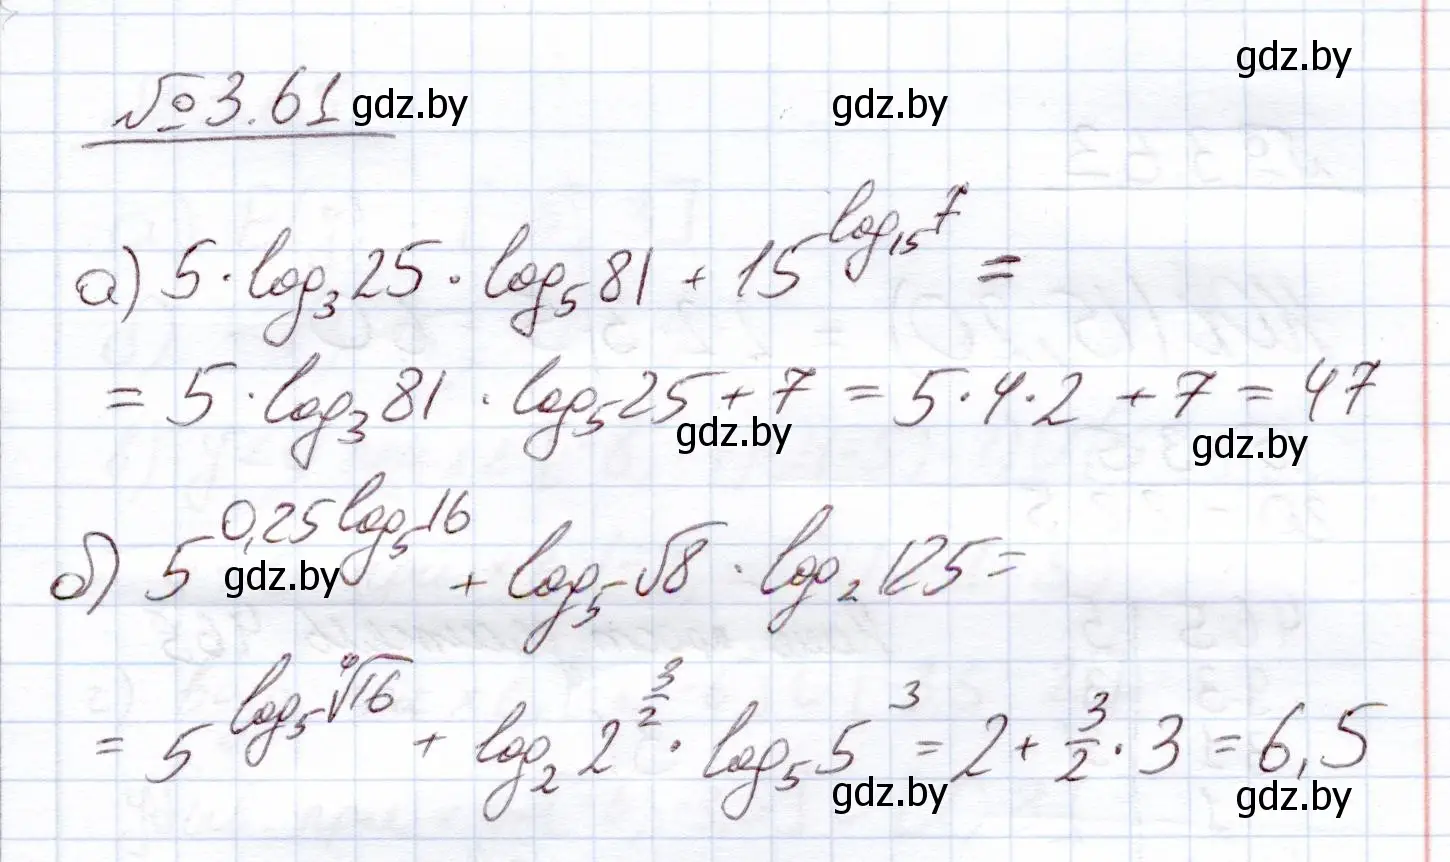 gdz.by
№3.61 gdz.by gdz.by
а) 5·log₃25·log₅81 + 15^(log₁₅7) =
= 5·log₃81·log₅25 + 7 = 5·4·2 + 7 = 47
gdz.by gdz.by
б) 5^(0,25log₅16) + log₅√8·log₂125 =
gdz.by
= 5^(log₅⁴√16) + log₂2^(3/2)·log₅5³ = 2 + 3/2·3 = 6,5
gdz.by gdz.by